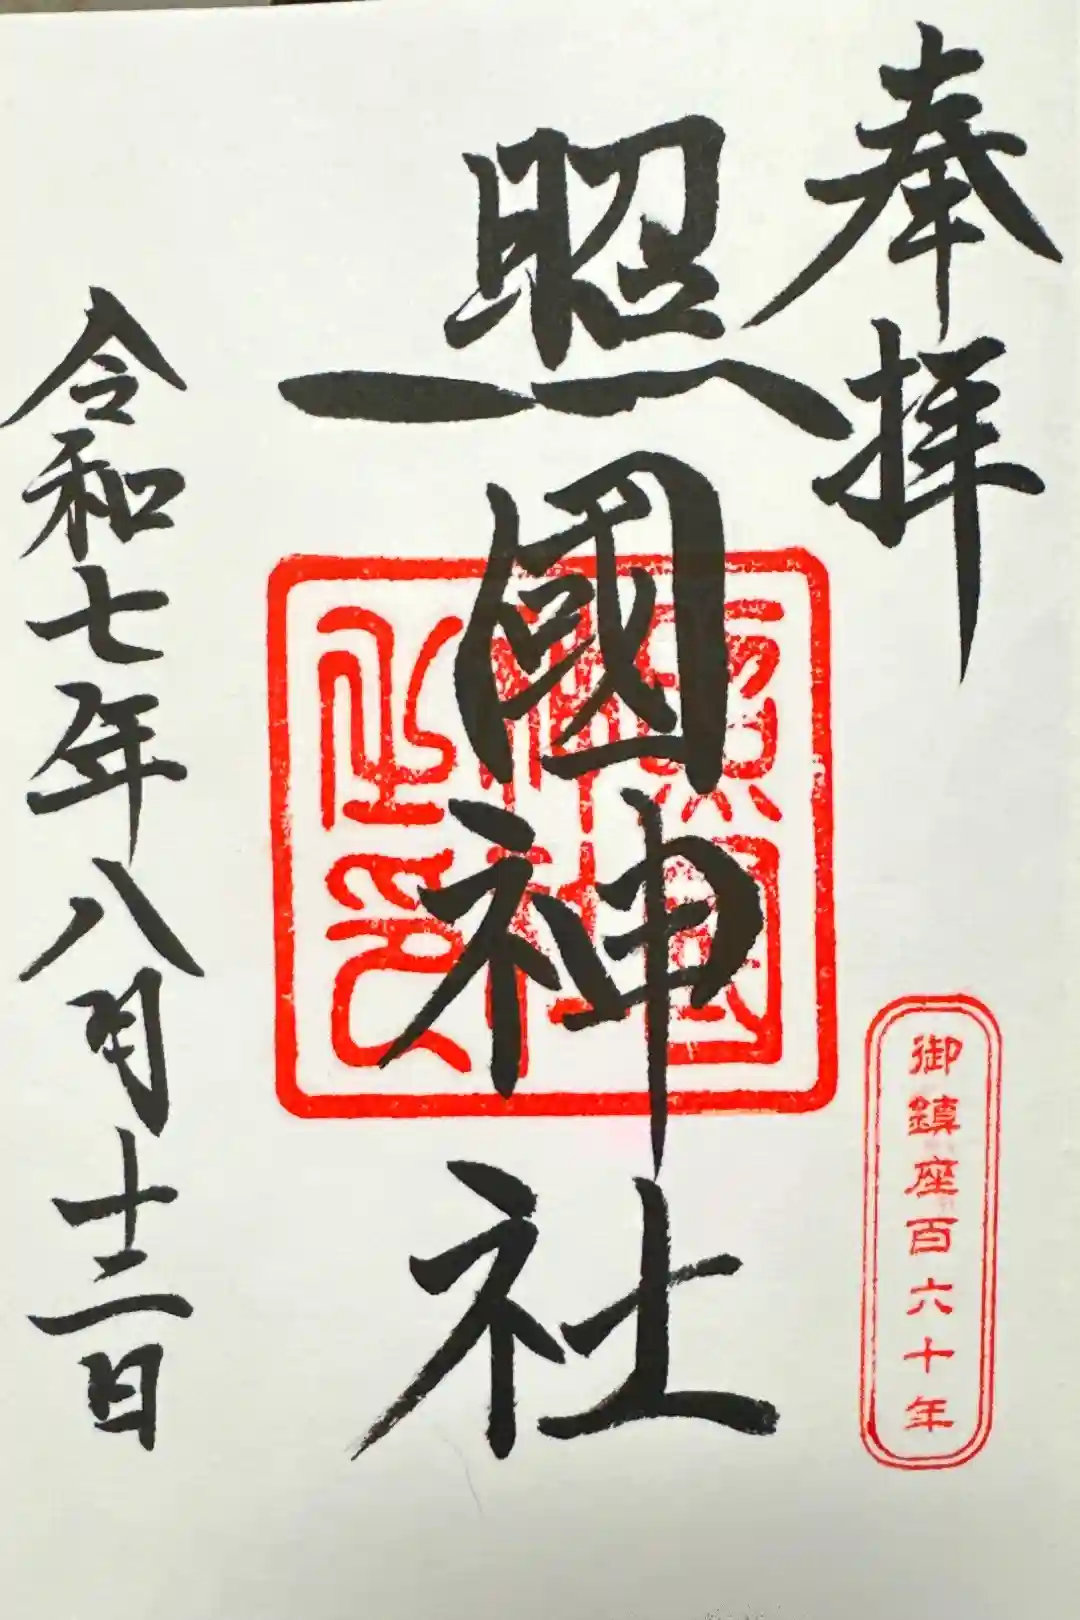 奉拝
照國神社
照國神社之印
御鎮座百六十年
令和七年八月十二日